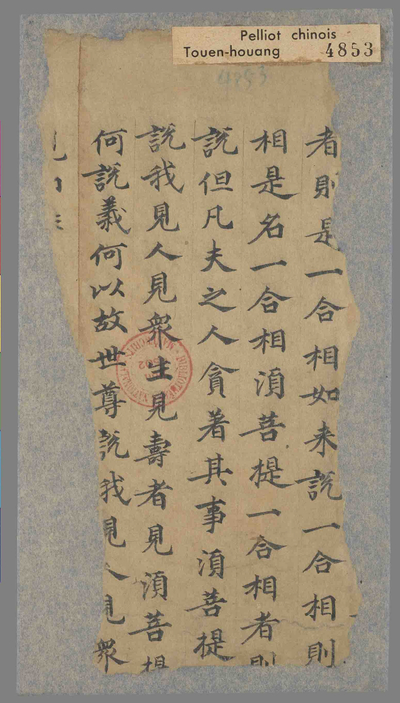 Pelliot chinois
Touen-houang 4853
4853
者則是一合相如来說一合相則
相是名一合相湏菩提一合相者則
說但凡夫之人貪著其事湏菩提
說我見人見衆生見壽者見湏菩提
何說義何以故世尊說我見人見衆